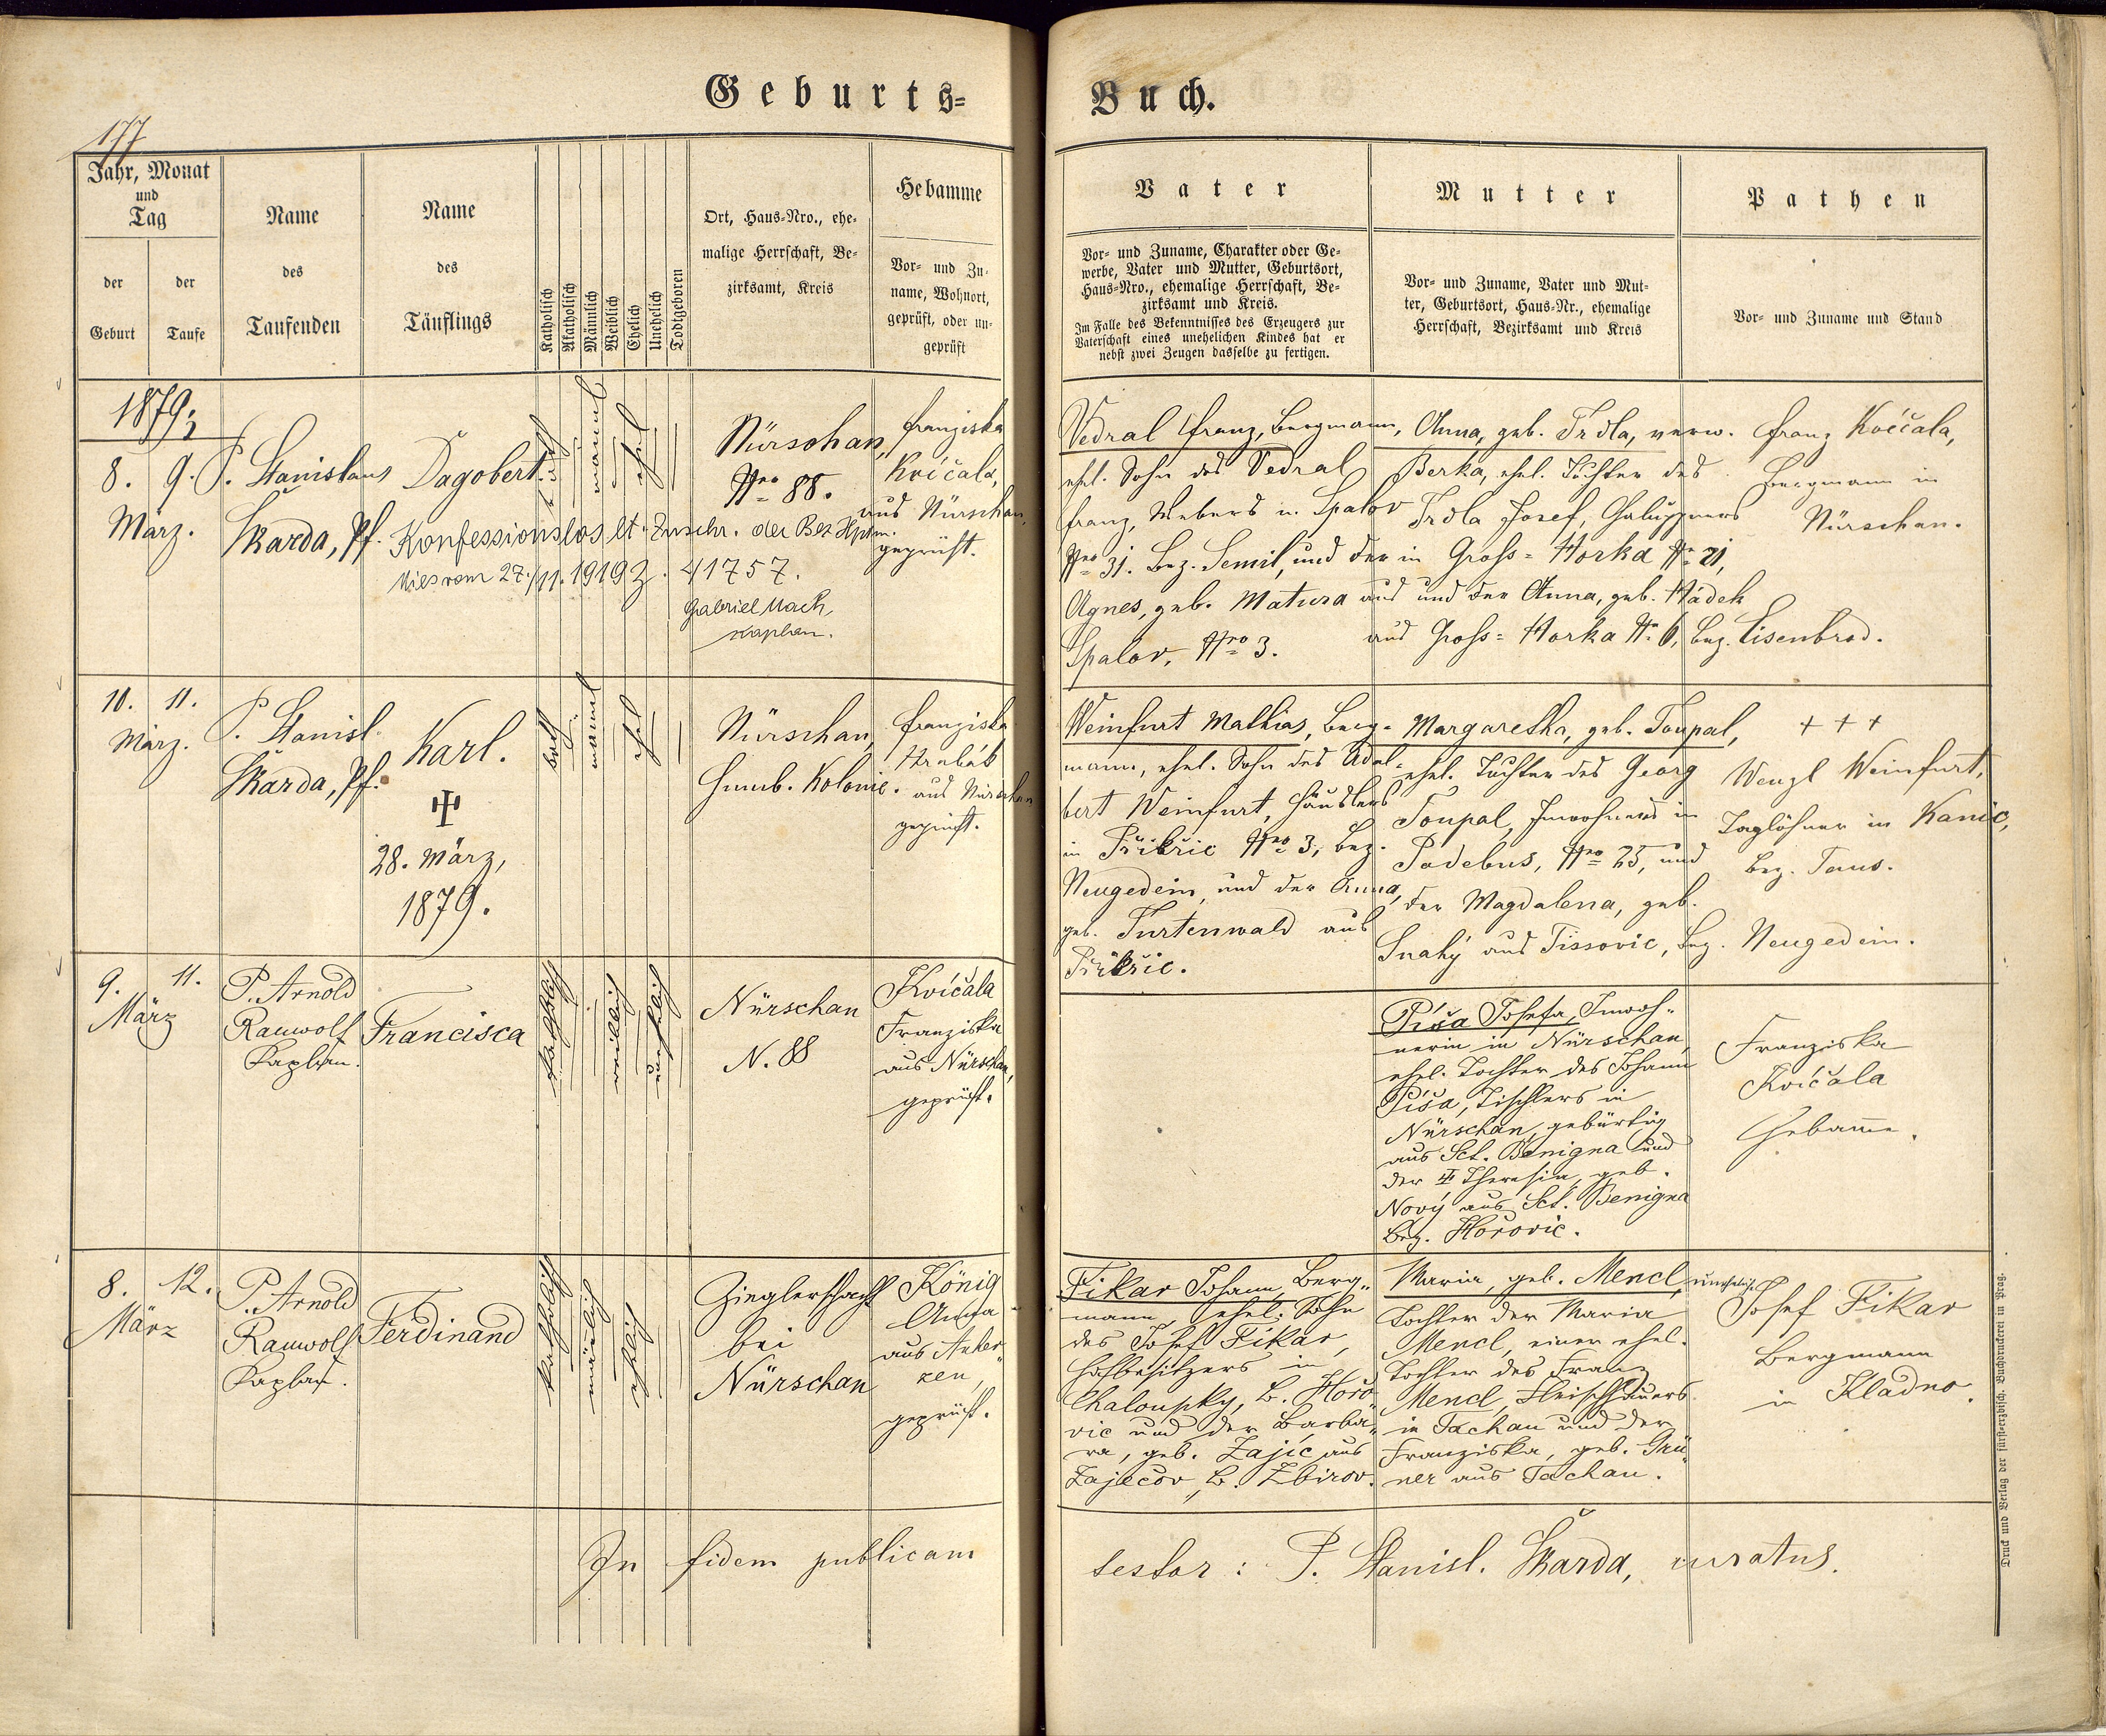 Geburts=
Buch.
177
Jahr, Monat
und
Tag
der
Geburt
der
Taufe
Name
des
Taufenden
Name
des
Täuflings
Katholisch
Akatholisch
Männlich
Weiblich
Ehelich
Unehelich
Todtgeboren
Ort, Haus=Nro., ehe=
malige Herrschaft, Be=
zirksamt, Kreis
Hebamme
Vor= und Zu=
name, Wohnort,
geprüft, oder un=
geprüft
Vater
Vor= und Zuname, Charakter oder Ge=
werbe, Vater und Mutter, Geburtsort,
Haus=Nro., ehemalige Herrschaft, Be=
zirksamt und Kreis.
Im Falle des Bekenntnisses des Erzeugers zur
Vaterschaft eines unehelichen Kindes hat er
nebst zwei Zeugen dasselbe zu fertigen.
Mutter
Vor= und Zuname, Vater und Mut=
ter, Geburtsort, Haus=Nr., ehemalige
Herrschaft, Bezirksamt und Kreis
Pathen
Vor= und Zuname und Stand
1879
8. 9.
März.
P. Stanislaus
Skarda, Pf.
Dagobert.
kath
männl
ehel
Nürschan,
Nro 88.
Konfessionslos lt. Zuschr. der Bez. Hptm.
Mies vom 27./11. 1919 Z. 41757.
Gabriel Mach,
Kaplan.
Franziska
Kvíčala,
aus Nürschan,
geprüft.
Vedral Franz, Bergmann,
ehel. Sohn des Vedral
Franz, Webers in Spalov
Nro 31. Bez. Semil, und der
Agnes, geb. Matura aus
Spalov, Nro 3.
Anna, geb. Trdla, verw.
Berka, ehel. Tochter des
Trdla Josef, Chaluppners
in Gross=Horka Nr 21,
und der Anna, geb. Hádek
aus Gross=Horka Nr 6, Bez. Eisenbrod.
Franz Kvíčala,
Bergmann in
Nürschan.
10. 11.
März.
P. Stanisl.
Skarda, Pf.
Karl.
28. März,
1879.
kath
männl
ehel
Nürschan,
Humb. Kolonie.
Franziska
Hrabák
aus Nürschan
geprüft.
Weinfurt Mathias, Berg=
mann, ehel. Sohn des Adal=
bert Weinfurt, Häuslers
in Přibřic Nro 3, Bez.
Neugedein, und der Anna,
geb. Furtenwald aus
Přibřic.
Margaretha, geb. Toupal,
ehel. Tochter des Georg
Toupal, Inwohners in
Podebus, Nro 25, und
der Magdalena, geb.
Snahý aus Tissovic, Bez. Neugedein.
+++
Wenzl Weinfurt,
Taglöhner in Kanic,
Bez. Taus.
9. 11.
März
P. Arnold
Rauwolf
Kaplan.
Francisca
katholisch
weiblich
unehelich
Nürschan
N. 88
Kvíčala
Franziska
aus Nürschan,
geprüft.
Píša Josefa, Inwoh=
nerin in Nürschan,
ehel. Tochter des Johann
Píša, Tischlers in
Nürschan, gebürtig
aus Sct. Benigna und
der Theresia, geb.
Nový aus Sct. Benigna
Bez. Hořovic.
Franziska
Kvíčala
Hebamme.
8. 12.
März
P. Arnold
Rauwolf
Kaplan.
Ferdinand
katholisch
männlich
ehelich
Zieglerschacht
bei
Nürschan
König
Anna
aus Auher=
zen,
geprüft.
Fikar Johann, Berg=
mann, ehel. Sohn
des Josef Fikar,
Hofbesitzers in
Chaloupky, B. Hořo=
vic und der Barba=
ra, geb. Zajíc aus
Zajecov, B. Zbirov.
Maria, geb. Mencl, unehelich.
Tochter der Maria
Mencl, einer ehel.
Tochter des Franz
Mencl, Fleischhauers
in Tachau und der
Franziska, geb. Grü=
ner aus Tachau.
Josef Fikar
Bergmann
in Kladno.
In fidem publicam
testor: P. Stanisl. Škarda, curatus.
Druck und Verlag der fürst-erzbisch. Buchdruckerei in Prag.